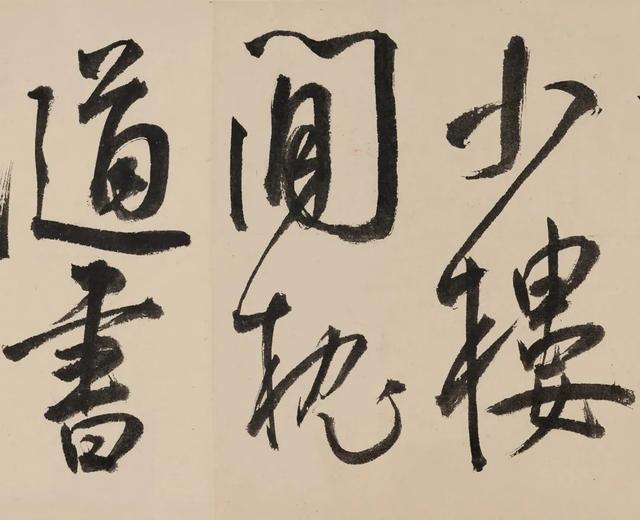 小樓
閒枕
道書